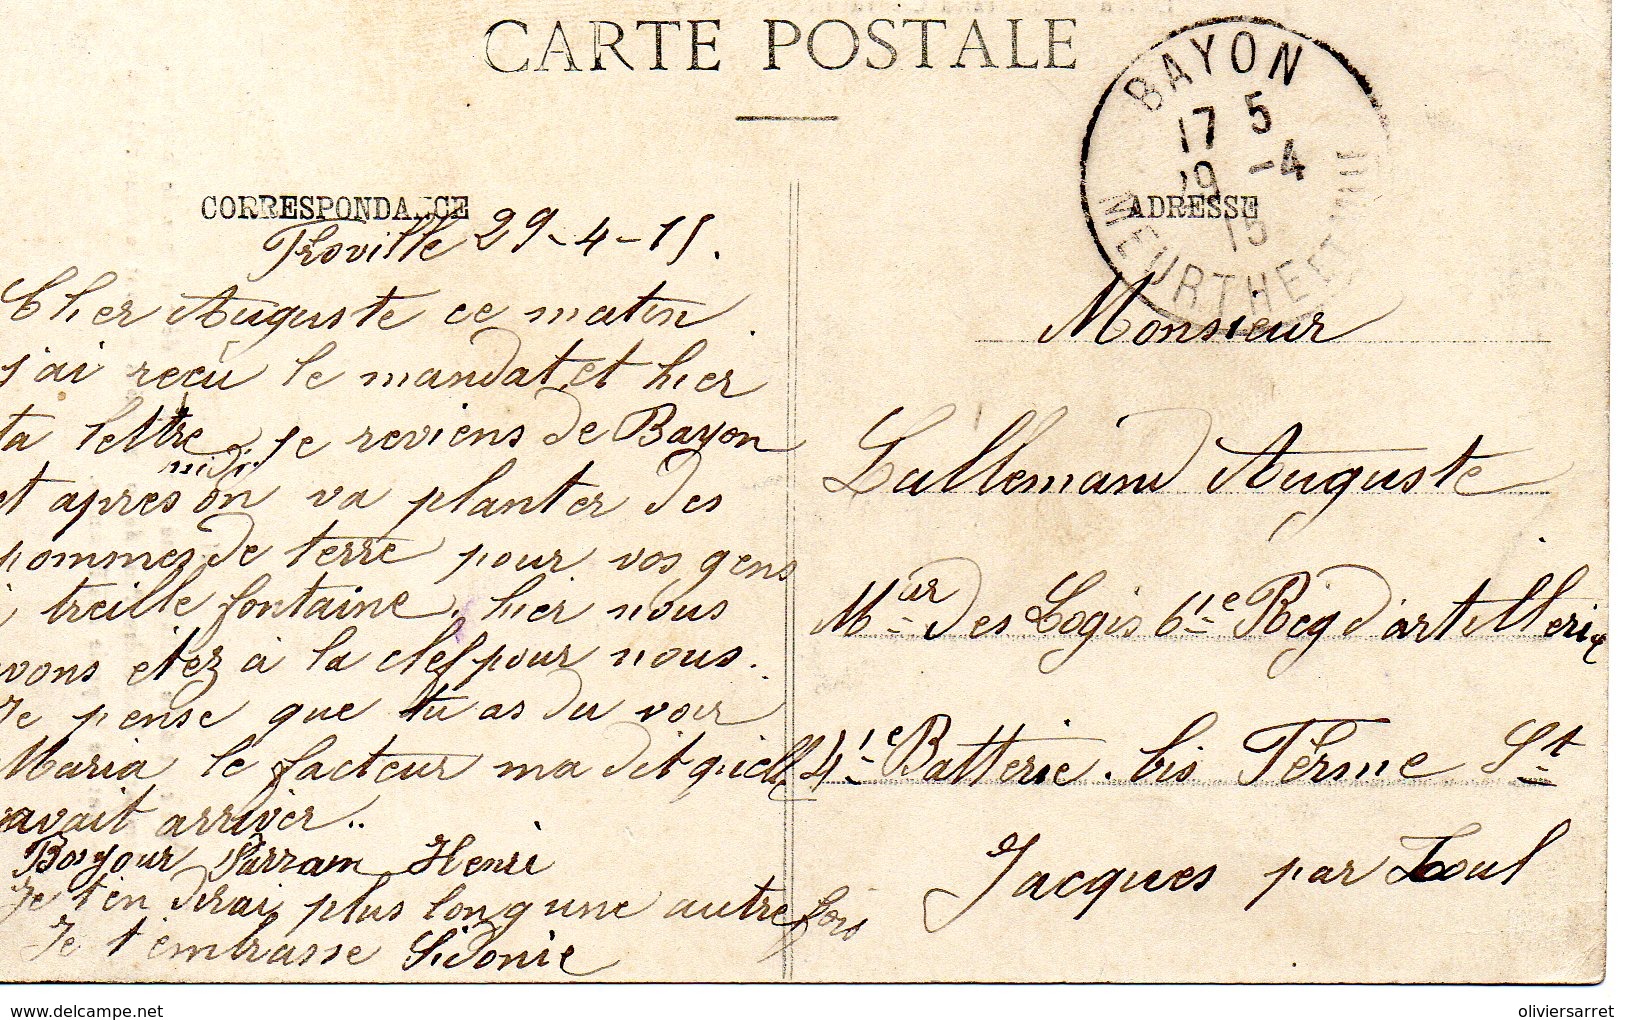 CARTE POSTALE
BAYON
17 5
29 -4
15
MEURTHE ET
CORRESPONDANCE
ADRESSE
Froville 29-4-15.
Cher Auguste ce matin
j'ai reçu le mandat, et hier
ta lettre je reviens de Bayon
midi
et apres on va planter des
pommes de terre pour vos gens
à treille fontaine, hier nous
avons étez à la clef pour nous.
Je pense que tu as du voir
Maria le facteur ma dit qu'elle
avait arriver..
Bonjour Parrain Henri
Je t'en dirai plus long une autre fois
Je t'embrasse Sidonie
Monsieur
Lallemand Auguste
Mar des Logis 6ie Reg d'artillerie
41e Batterie. bis Ferme St
Jacques par Toul
www.delcampe.net
olivier­sarret